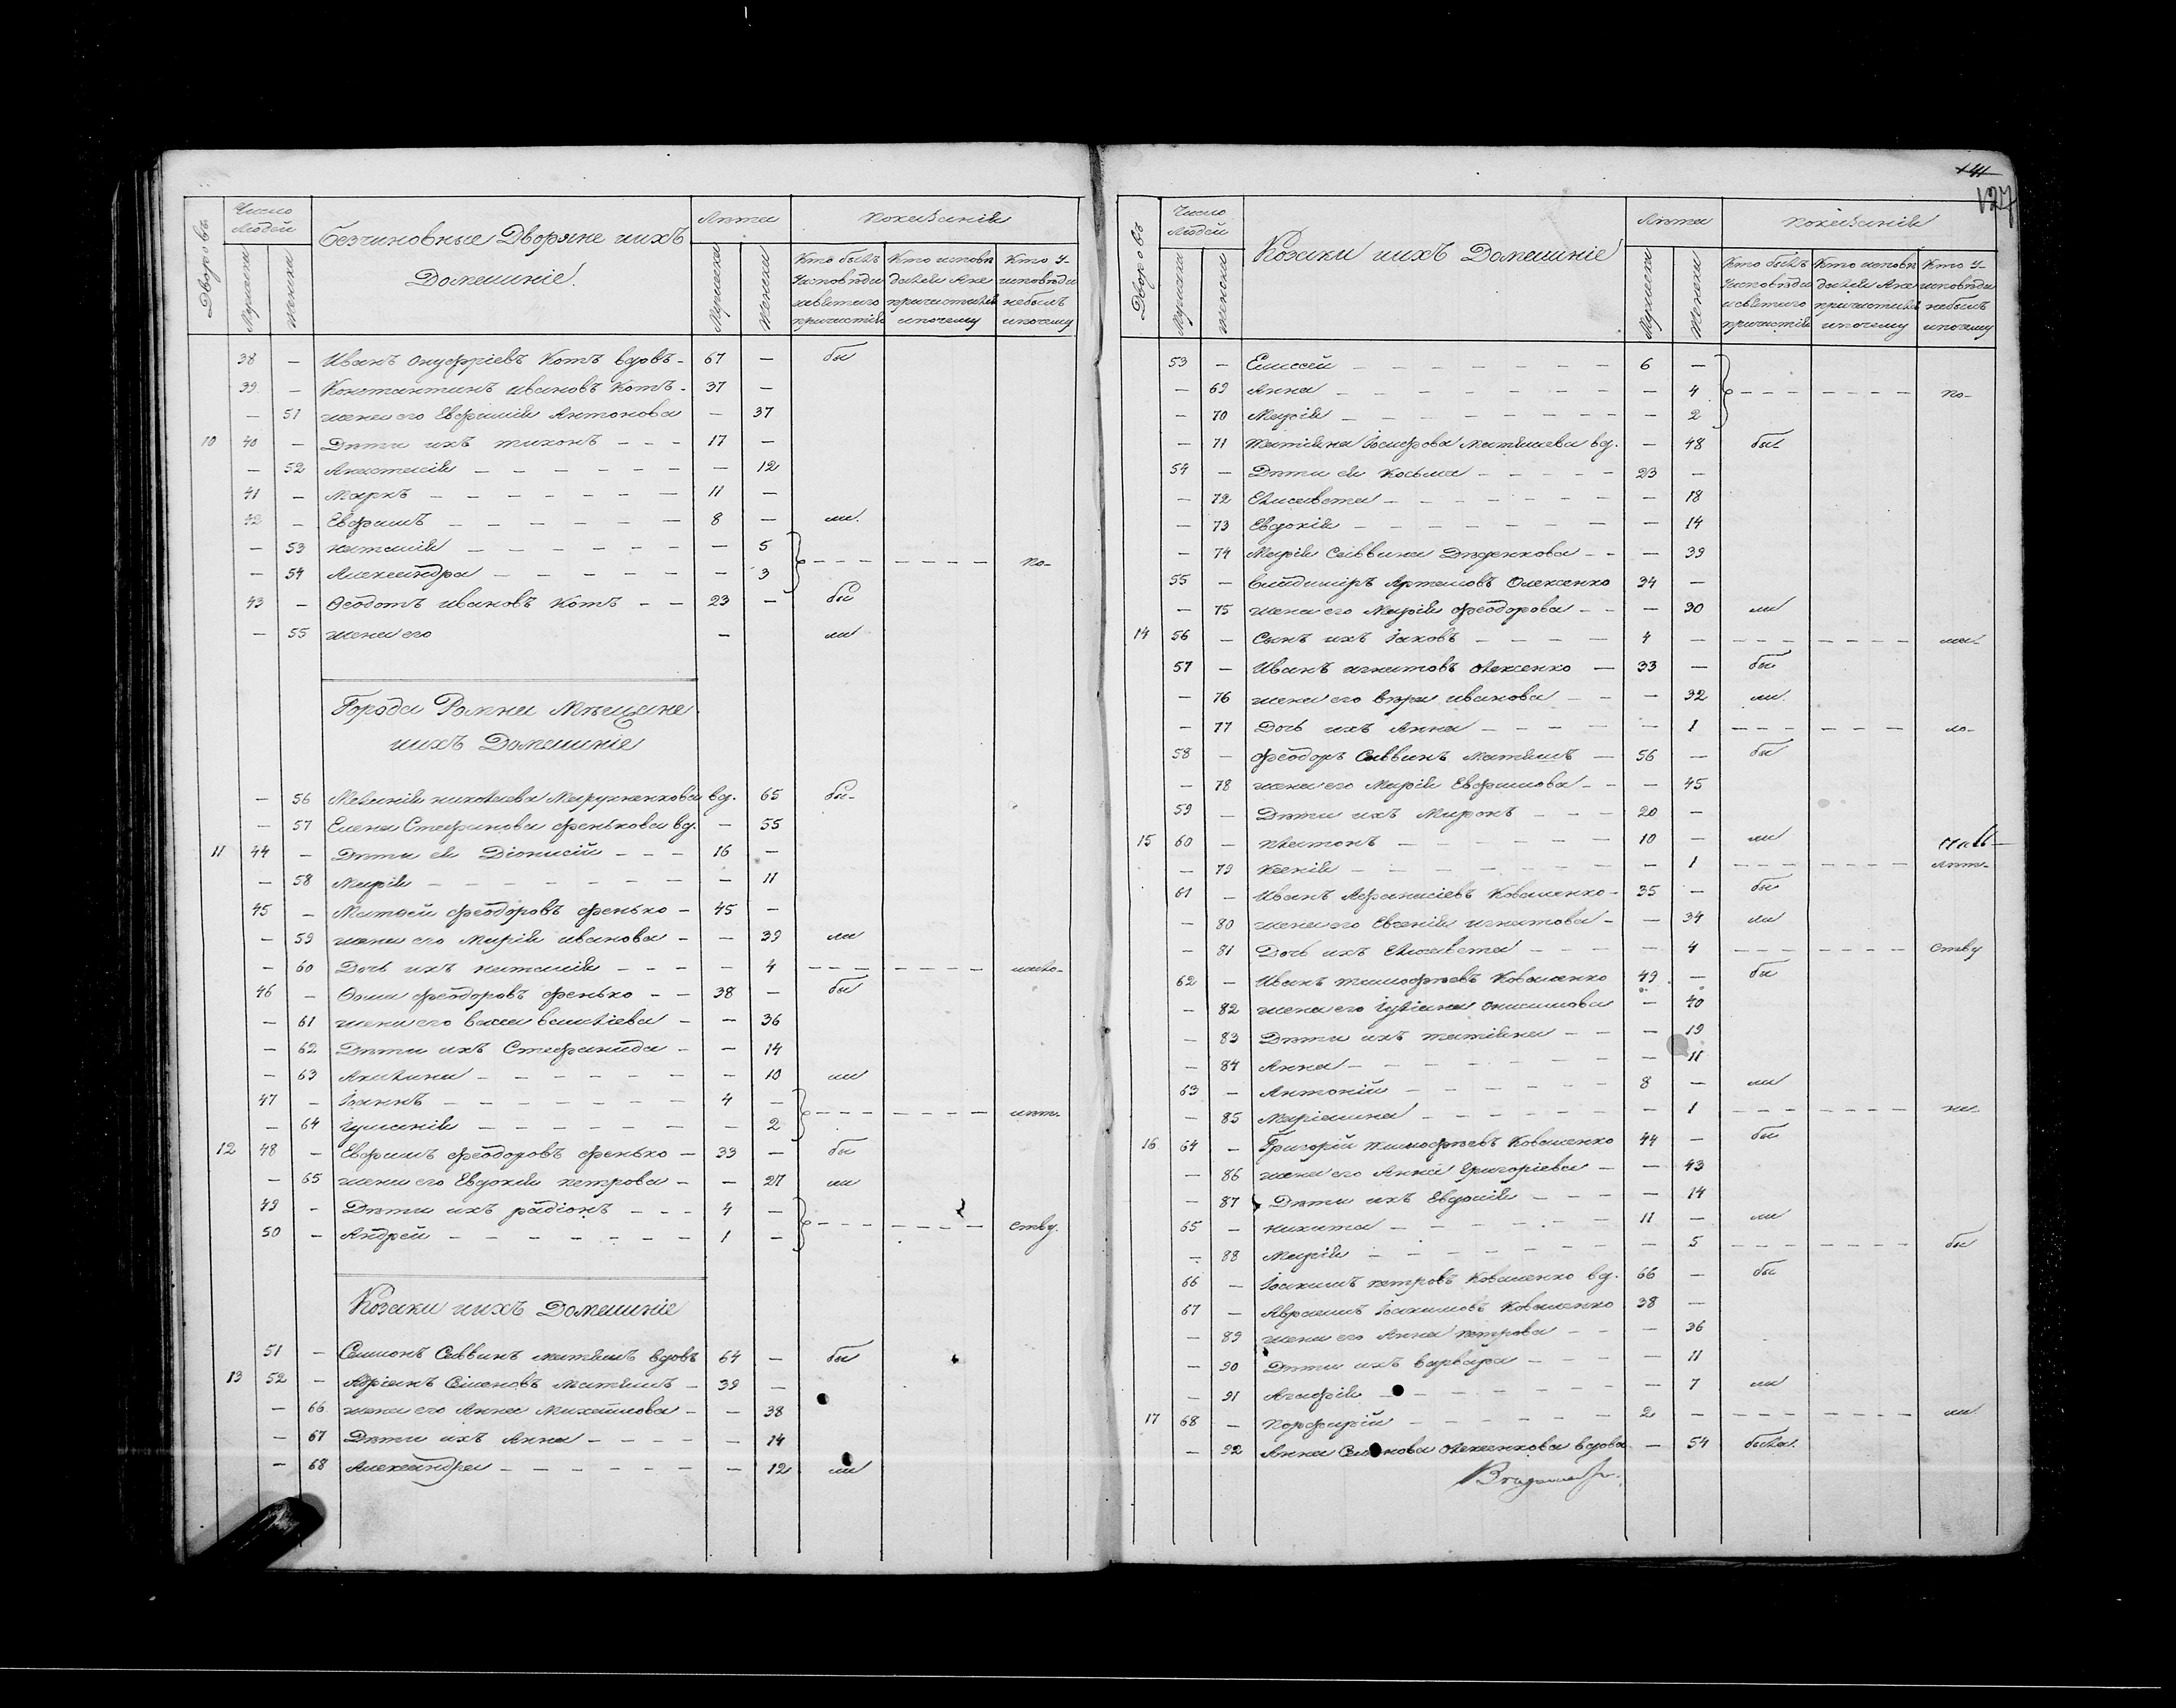 Дворовъ
Число Людей
Мужеска
Женска
безчиновные Дворяне иихъ
Домашніе.
Лѣта
Мужеска
Женска
Показаніе
Кто былъ Уисповѣди исвятаго причастія
Кто исповѣдался Ане причастился ипочему
Кто У исповѣди небылъ ипочему
38 — Иванъ Онуфріевъ Котъ вдовъ - 67 — бы
39 — Константинъ ивановъ Котъ - 37 —
— 51 жена его Евфимія Антонова — 37
10 40 — Дѣти ихъ тихонъ - - - 17 —
— 52 Анастасія — — 12
41 — Маркъ — 11 —
42 — Евфимъ — 8 — ли.
— 53 наталія — — 5
— 54 Александра — — 3 по-
43 — Ѳеодотъ ивановъ Котъ - - 23 — бы
— 55 жена его — ли
Города Ромна Мѣщане
иихъ Домашніе
— 56 Меланія николаева вд. 65 бы-
— 57 Елена Стефанова фенькова вд. — 55
11 44 — Дѣти ея Діонисій - - - 16 —
— 58 Марія — — 11
45 — Матѳей феодоровъ фенько - 45 —
— 59 жена его Марія иванова - — 39 ли
— 60 Дочь ихъ наталія - - - — 4 мало-
46 — Ѳома феодоровъ фенько - - 38 — бы
— 61 жена его васса василіева - — 36
— 62 Дѣти ихъ Стефанида - — 14
— 63 Акилина — — 10 ли
47 — Іоаннъ — 4 —
— 64 іуліанія — — 2 лѣт-
12 48 — Евфимъ феодоровъ фенько - 33 — бы
— 65 жена его Евдокія петрова - — 27 ли
49 — Дѣти ихъ радіонъ - - - 4 —
50 — Андрей — 1 — ству.
Козаки иихъ Домашніе
51 — Симонъ Саввинъ матяшъ вдовъ 64 — бы
13 52 — Адріанъ Симоновъ Матяшъ - 39 —
— 66 жена его Анна Михайлова - — 38
— 67 Дѣти ихъ Анна — — 14
— 68 Александра — — 12 ли
127
Дворовъ
Число Людей
Мужеска
женска
Козаки иихъ Домашніе
Лѣта
Мужеска
Женска
Показаніе
Кто былъ Уисповѣди исвятаго причастія
Кто исповѣдался Ане причастился ипочему
Кто У исповѣди небылъ ипочему
53 — Елисей — 6 —
— 69 Анна — — 4 по-
— 70 Марія — — 2
— 71 татіяна Іосифова матяшева вд. — 48 был
54 — Дѣти ея Косьма — 23 —
— 72 Елисавета — — 18
— 73 Евдокія — — 14
— 74 Марія Саввина Дяденкова - - — 39
55 — владиміръ Артемовъ Олексенко 34 —
— 75 жена его Марія феодорова - - — 30 ли
14 56 — Сынъ ихъ Іаковъ — 4 — ма-
57 — Иванъ игнатовъ Олексенко — 33 — бы
— 76 жена его вѣра иванова — — 32 ли.
— 77 Дочь ихъ Анна — — 1 ло-
58 — феодоръ Саввинъ Матяшъ — 56 — бы
— 78 жена его Марія Евфимова - - — 45
59 — Дѣти ихъ Миронъ — 20 —
15 60 — платонъ — 10 — ли
— 79 Ксенія — — 1 лѣт-
61 — Иванъ Афанасіевъ Коваленко - 35 — бы
— 80 жена его Евгенія игнатова - — 34 ли
— 81 Дочь ихъ Елисавета — — 4 ству
62 — Иванъ тимофѣевъ Коваленко 49 — бы
— 82 жена его Іуліана Онисимова — 40
— 83 Дѣти ихъ татіяна - - — 19
— 84 Анна — — 11
63 — Антоній — 8 — ли
— 85 Маріанна — — 1 не-
16 64 — Григорій тимофѣевъ Коваленко 44 — бы
— 86 жена его Анна Григоріева — — 43
— 87 Дѣти ихъ Евдокія - - - — 14
65 — никита — 11 — ли
— 88 Марія — — 5 бы
66 — Іоакимъ петровъ Коваленко вд. 66 — бы
67 — Авраамъ Іоакимовъ Коваленко 38 —
— 89 жена его Анна петрова - - — 36
— 90 Дѣти ихъ варвара — — 11
— 91 Агафія — — 7 ли
17 68 — порфирій — 2 — ли
— 92 Анна Симонова Олексенкова вдова — 54 была.